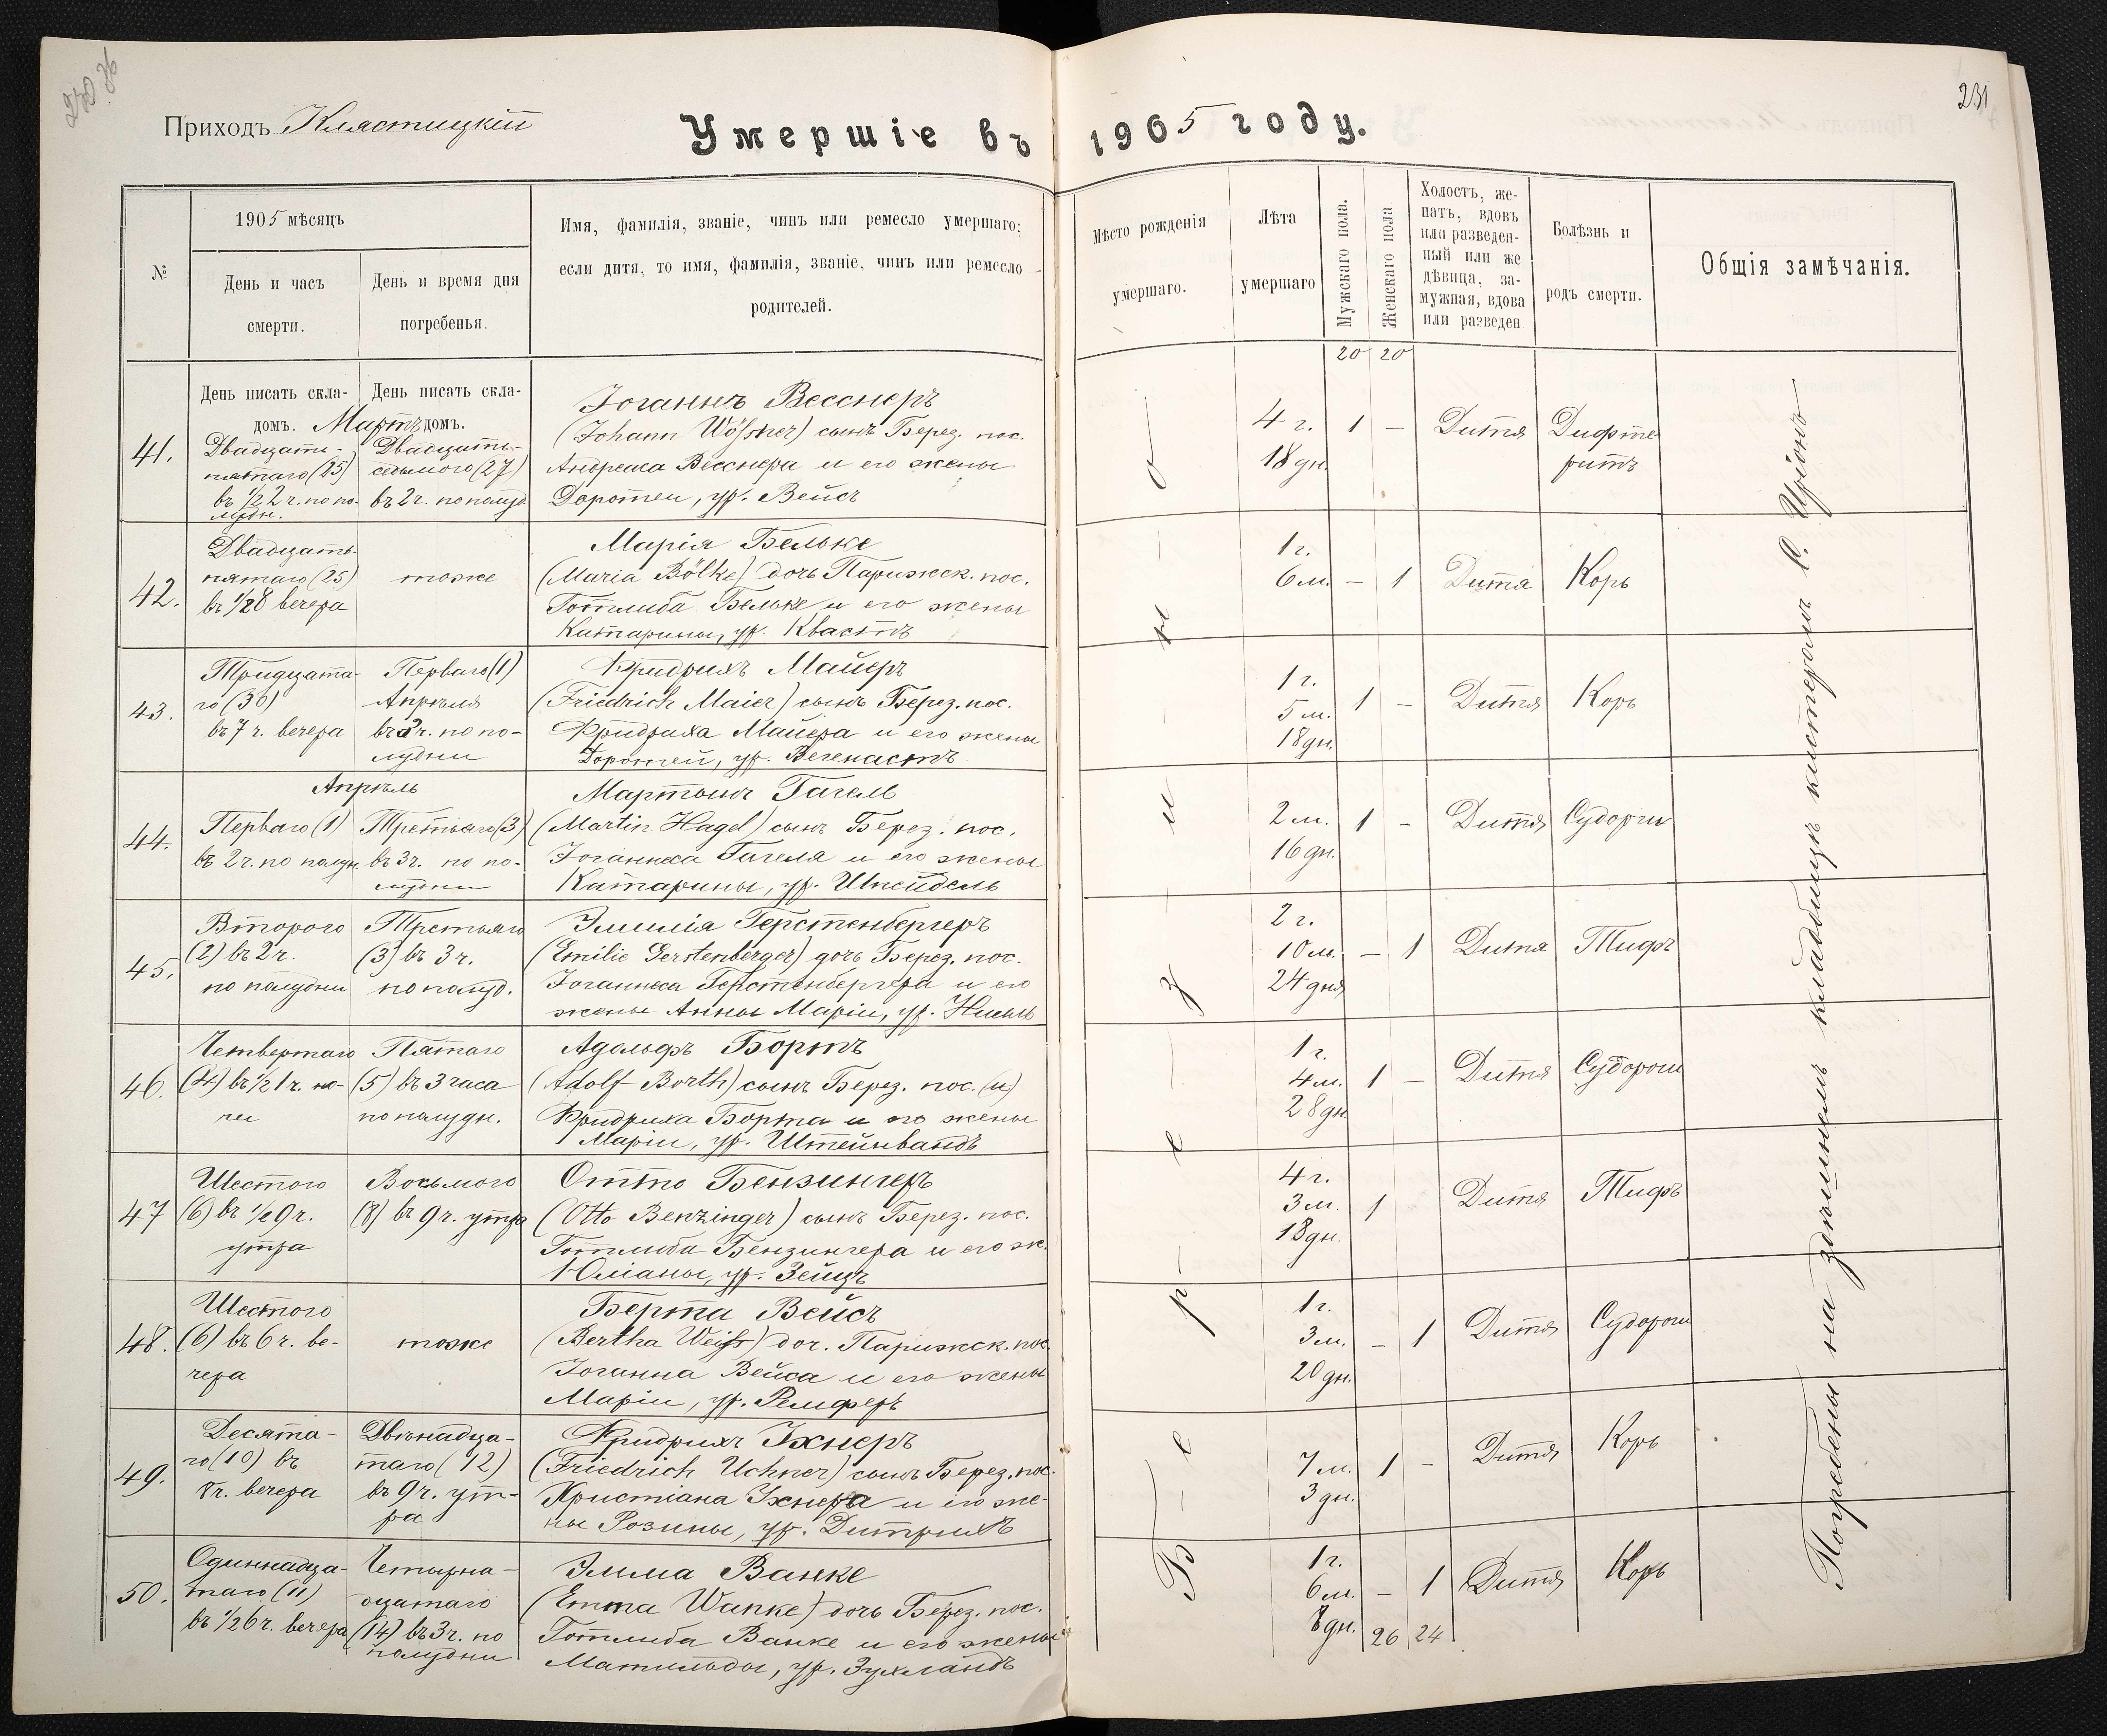 Приходъ Клястицкій
Умершіе въ 1905 году.
231
№
1905 мѣсяцъ
День и часъ
смерти.
День и время дня
погребенья.
Имя, фамилія, званіе, чинъ или ремесло умершаго;
если дитя, то имя, фамилія, званіе, чинъ или ремесло
родителей.
Мѣсто рожденія
умершаго.
Лѣта
умершаго
Мужскаго пола.
Женскаго пола.
Холостъ, же-
натъ, вдовъ
или разведен-
ный или же
дѣвица, за-
мужная, вдова
или разведен
Болѣзнь и
родъ смерти.
Общія замѣчанія.
20 20
День писать скла-
домъ.
День писать скла-
домъ.
Мартъ
41.
Двадцать-
пятаго (25)
въ ½ 2 ч. по по-
лудн.
Двадцать-
седьмого (27)
въ 2 ч. по полуд
Іоганнъ Весснеръ
(Johann Wößner) сынъ Берез. пос.
Андреаса Весснера и его жены
Доротеи, ур. Вейсъ
4 г.
18 дн.
1 –
Дитя
Дифте-
ритъ
42.
Двадцать-
пятаго (25)
въ ½ 8 вечера
тоже
Марія Бельке
(Maria Bölke) дочь Парижск. пос.
Готлиба Бельке и его жены
Катарины, ур. Квастъ
1 г.
6 м.
– 1
Дитя
Корь
43.
Тридцата-
го (30)
въ 7 ч. вечера
Перваго (1)
Апрѣля
въ 3 ч. по по-
лудни
Фридрихъ Майеръ
(Friedrich Maier) сынъ Берез. пос.
Фридриха Майера и его жены
Доротеи, ур. Вегенастъ
1 г.
5 м.
18 дн.
1 –
Дитя
Корь
Апрѣль
44.
Перваго (1)
въ 2 ч. по полудн
Третьяго (3)
въ 3 ч. по по-
лудни
Мартынъ Гагель
(Martin Hagel) сынъ Берез. пос.
Іоганнеса Гагеля и его жены
Катарины, ур. Шнейдель
2 м.
16 дн.
1 –
Дитя
Судороги
45.
Второго
(2) въ 2 ч.
по полудни
Третьяго
(3) въ 3 ч.
по полуд.
Эмилія Герстенбергеръ
(Emilie Gerstenberger) дочь Берез. пос.
Іоганнеса Герстенбергера и его
жены Анны Маріи, ур.
2 г.
10 м.
24 дня
– 1
Дитя
Тифъ
46.
Четвертаго
(4) въ ½ 1 ч. но-
чи
Пятаго
(5) въ 3 часа
по полудн.
Адольфъ Бортъ
(Adolf Borth) сынъ Берез. пос. (и)
Фридриха Борта и его жены
Маріи, ур. Штейнвандъ
1 г.
4 м.
28 дн
1 –
Дитя
Судороги
47
Шестого
(6) въ ½ 9 ч.
утра
Восьмого
(8) въ 9 ч. утра
Отто Бензингеръ
(Otto Benzinger) сынъ Берез. пос.
Готлиба Бензингера и его ж.
Юліаны, ур. Зейцъ
4 г.
3 м.
18 дн.
1
Дитя
Тифъ
48.
Шестого
(6) въ 6 ч. ве-
чера
тоже
Берта Вейсъ
(Bertha Weiß) доч. Парижск. пос.
Іоганна Вейса и его жены
Маріи, ур. Ремпферъ
1 г.
3 м.
20 дн.
– 1
Дитя
Судороги
49.
Десята-
го (10) въ
8 ч. вечера
Двѣнадца-
таго (12)
въ 9 ч. ут-
ра
Фридрихъ Ихнеръ
(Friedrich Uchner) сынъ Берез. пос.
Христіана Ихнера и его же-
ны Розины, ур. Дитрихъ
7 м.
3 дн.
1 –
Дитя
Корь
50.
Одиннадца-
таго (11)
въ ½ 6 ч. вечера
Четырна-
дцатаго
(14) въ 3 ч. по
полудни
Эмма Ванке
(Emma Wanke) дочь Берез. пос.
Готлиба Ванке и его жены
Матильды, ур. Зухландъ
1 г.
6 м.
8 дн.
– 1
Дитя
Корь
26 24
Б–е–р–е–з–и–н–о
Погребены на здѣшнемъ кладбищѣ кистеромъ